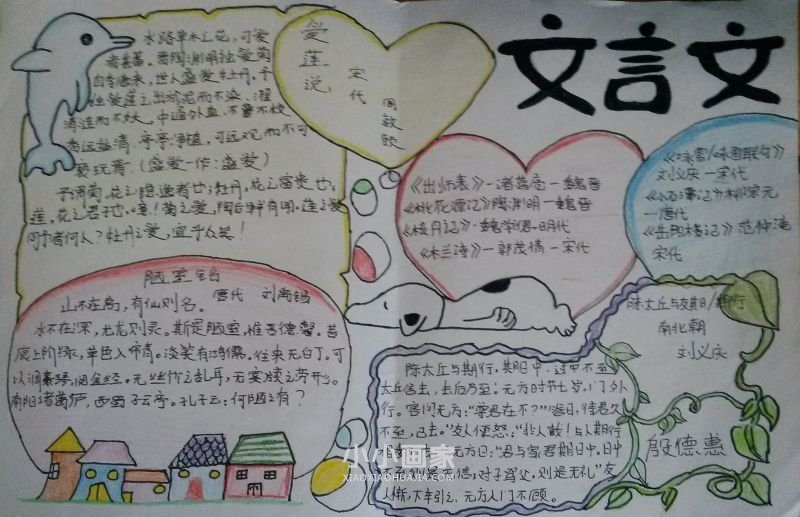 文言文
爱莲说
宋代
周敦颐
水陆草木之花，可爱
者甚蕃。晋陶渊明独爱菊
自李唐来，世人盛爱牡丹。予
独爱莲之出淤泥而不染，濯
清涟而不妖，中通外直，不蔓不枝
香远益清，亭亭净植，可远观而不可
亵玩焉。(盛爱一作：盛爱)
予谓菊，花之隐逸者也；牡丹，花之富贵也；
莲，花之君子也。噫！菊之爱，陶后鲜有闻，莲之爱
同予者何人？牡丹之爱，宜乎众矣！
《出师表》—诸葛亮—魏晋
《桃花源记》陶渊明—魏晋
《核舟记》—魏学伊—明代
《木兰诗》—郭茂倩—宋代
《咏雪/咏雪联句》
刘义庆—宋代
《小石潭记》柳宗元
—唐代
《岳阳楼记》范仲淹
宋代
陋室铭
唐代 刘禹锡
山不在高，有仙则名。
水不在深，有龙则灵。斯是陋室，惟吾德馨。苔
痕上阶绿，草色入帘青。谈笑有鸿儒，往来无白丁。可
以调素琴，阅金经。无丝竹之乱耳，无案牍之劳形。
南阳诸葛庐，西蜀子云亭。孔子云：何陋之有？
陈太丘与友期/期行
南北朝
刘义庆
陈太丘与期行，期日中，过中不至，
太丘舍去，去后乃至。元方时年七岁，门外
行。客问元方：“尊君在不？”答曰，待君久
不至，已去。”友人便怒：“非人哉！与人期行
元方曰：“君与家君期日中。日中
不至，则是无信；对子骂父，则是无礼”友
人惭，下车引之，元方入门不顾。
殷德惠
小小画家
XIAOXIAOHUAJIA.COM